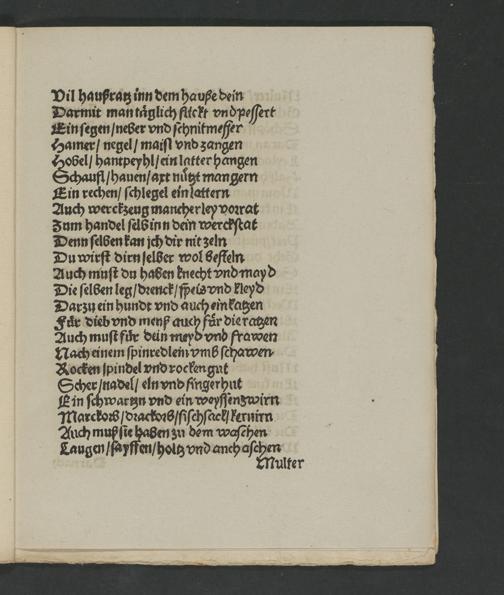 Vil haußratz inn dem hauße dein
Darmit man täglich flickt vnd pessert
Ein segen/neber vnd schnitmesser
Hamer/ negel/ maisl vnd zangen
Hobel/ hantpeyhl/ ein latter hangen
Schaufl/ hauen/ axt nützt man gern
Ein rechen/ schlegel ein lattern
Auch werckzeug mancherley vorrat
Zum handel selb inn dein werckstat
Denn selben kan ich dir nit zeln
Du wirst dirn selber wol besteln
Auch must du haben knecht vnd mayd
Die selben leg/ drenck/ speis vnd kleyd
Darzu ein hundt vnd auch ein katzen
Für dieb vnd menß auch für die ratzen
Auch must für dein meyd vnd frawen
Nach einem spinredlein vmb schawen
Rocken spindel vnd rocken gut
Scher/nadel/ eln vnd fingerhut
Ein schwartzn vnd ein weyssen zwirn
Marckorb/drackorb/fischsack/
Auch muß sie haben zu dem waschen
Laugen/sayffen/holtz vnd anch aschen
Multer